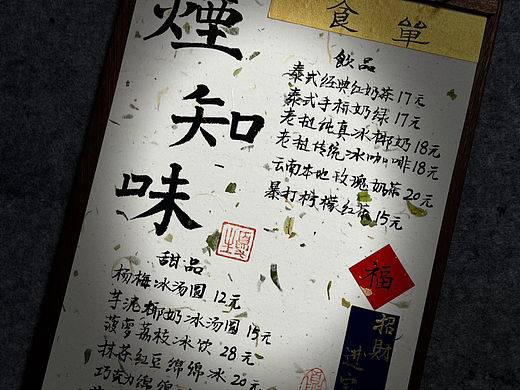 食單
煙知味
飲品
泰式经典红奶茶 17元
泰式手标奶绿 17元
老挝纯真冰椰奶 18元
老挝传统冰咖啡 18元
云南本地玫瑰奶茶 20元
暴打柠檬红茶 15元
甜品
杨梅冰汤圆 12元
芋泥椰奶冰汤圆 15元
菠萝荔枝冰饮 28元
抹茶红豆绵绵冰 20元
巧克力绵绵
福
招財
进